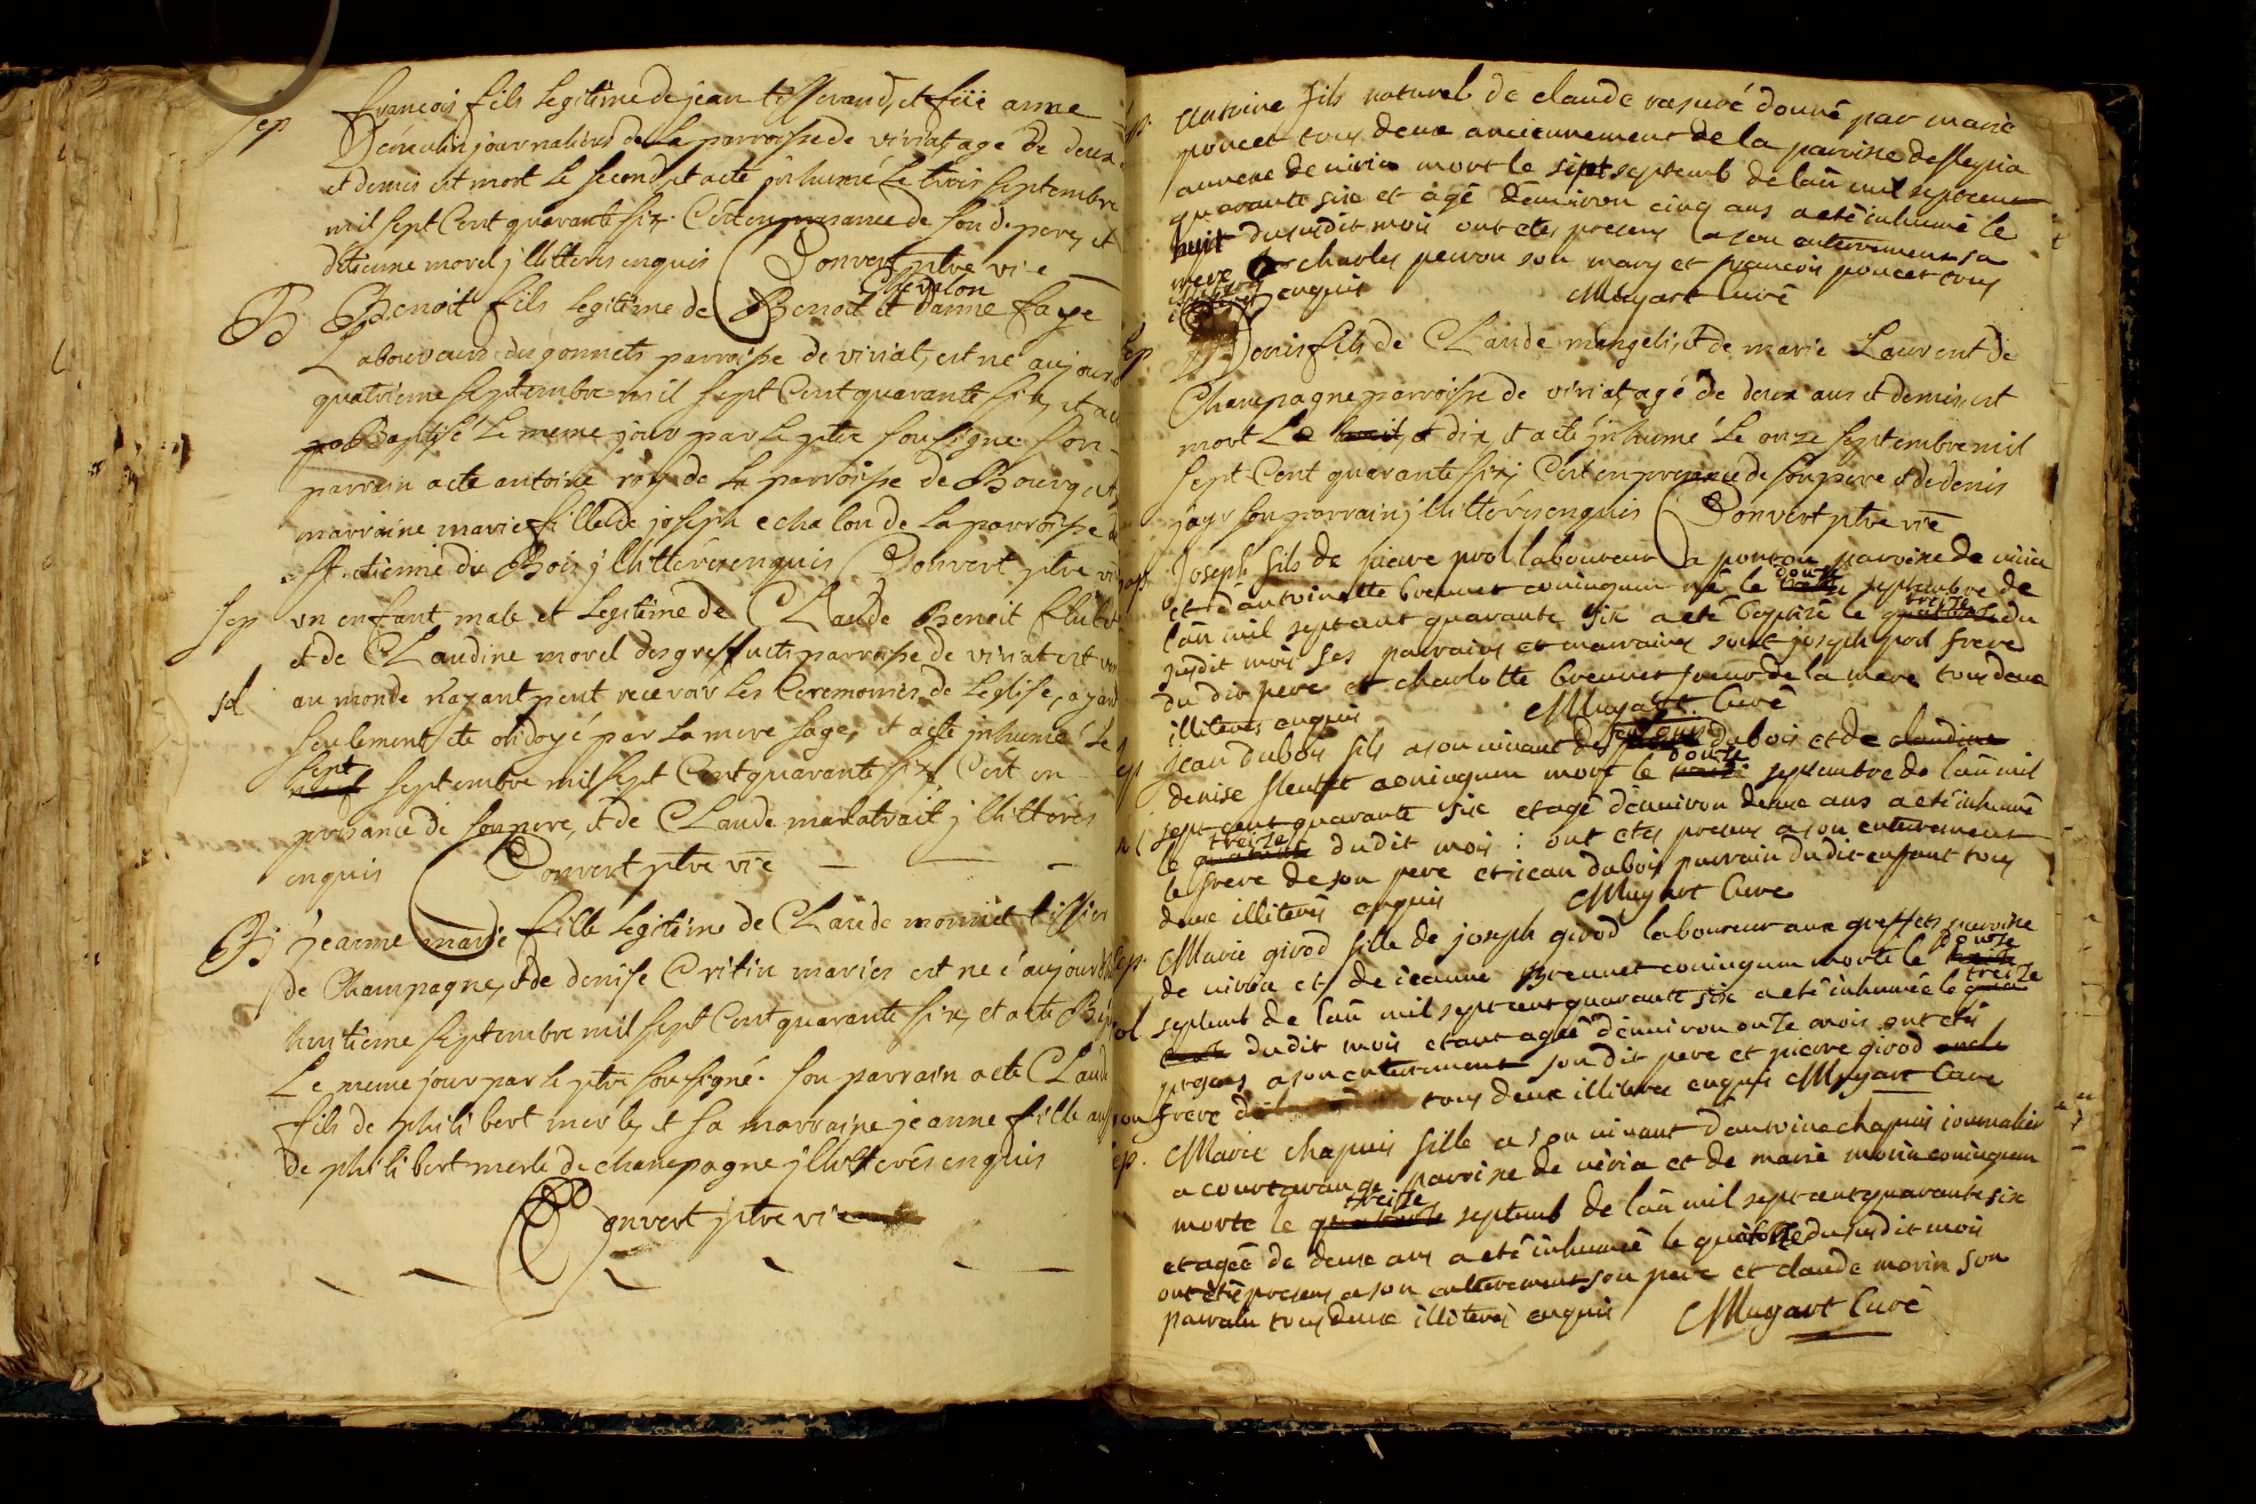 françois fils legitime de jean tisserand, et feüe anne
sep
journaliers de la parroisse de viriat, agé de deux
et demis est mort le second, et a ete jnhumé le trois septembre
mil sept Cent quarante six. C'est en presance de son d. pere, et
d'etienne morel jllitteres enquis Convert ptre vi-e
Chevalon
B Benoit fils legitime de Benoit et d'anne faye
Laboureurs des gonnets parroisse de viriat, est né aujourd
quatrieme septembre mil sept Cent quarante six, et a e
Baptisé le meme jour par le ptre sousigné. son
parrain a ete antoine roy de la parroisse de Bourg et
marraine marie fille de joseph echalon de la parroisse d
st. etienne du Bois jllitterés enquis Convert ptre vi
sep un enfant male et legitime de Claude Benoit
et de Claudine morel des greffets parroisse de viriat est ven
sol au monde n'ayant peut recevoir les Ceremonies de leglise, ayant
seulement ete ondoyé par la mere sage, et a ete jnhumé le
sept
septembre mil sept Cent quarante six, C'est en
presance de son pere, et de Claude jllitterés
enquis Convert ptre vi-e
B jeanne marie fille legitime de Claude monniet tissier
de Champagne, et de denise Critin mariés est née aujourdh
huitieme septembre mil sept Cent quarante six, et a ete Bap
Le meme jour par le ptre sousigné. son parrain a ete Claude
fils de philibert merle, et sa marraine jeanne fille aus
de philibert merle de champagne jllitterés enquis
Convert ptre vi-e
antoine fils naturel de claude donné par marie
poncet tous deux anciennement de la paroisse de
mort le sept septemb de lañ mil septcent
quarante six et agé d'environ cinq ans a eté inhumé le
huit dususdit mois ont etes presens a son enterrement sa
mere charles peuron son mary et françois poncet tous
enquis Mugart Curé
sep Denis fils de Claude mangeli, et de marie Laurent de
Champagne parroisse de viriat, agé de deux ans et demis, est
mort le dix, et a ete jnhumé le onze septembre mil
sept Cent quarante six, C'est en presance de son pere et de denis
jayr son parrain jllitterés enquis Convert ptre vi-e
bap. Joseph fils de pierre prol laboureur a paroisse de viria
et d'antoinette brennet coniugum né le douze septembre de
lañ mil septcent quarante six a eté baptisé le treize du
susdit mois ses parrains et marraines sont joseph prol frere
du dit pere et charlotte brennet soeur de la mere tous deux
illiterés enquis Mugart Curé
sep jean dubois fils a son vivant de dubois et de
denise coniugum mort le douze septembre de lañ mil
sept cent quarante six et agé d'environ deux ans a eté inhumé
le treize dudit mois : ont etes presens a son enterrement
le frere de son pere et jean dubois parrain dudit enfant tous
deux illiterés enquis Mugart Cure
sep. Marie girod fille de joseph girod laboureur aux greffets paroisse
de viria et de jeanne Brennet coniugum morte le douze
sol septemb de lañ mil septcent quarante six a eté inhumée le treize
dudit mois etant agée d'environ onze mois ont etés
presens a son enterrement son dit pere et pierre girod
son frere tous deux illiteres enquis Mugart Cure
sep. Marie chapuis fille a son vivant d'antoine chapuis journalier
a courtarange paroisse de viria et de marie morin coniugum
morte le treize septemb de lañ mil septcent quarante six
et agée de deux ans a eté inhumée le quatorze dususdit mois
ont etés presens a son enterrement son pere et claude morin son
parrain tous deux illiterés enquis Mugart Curé